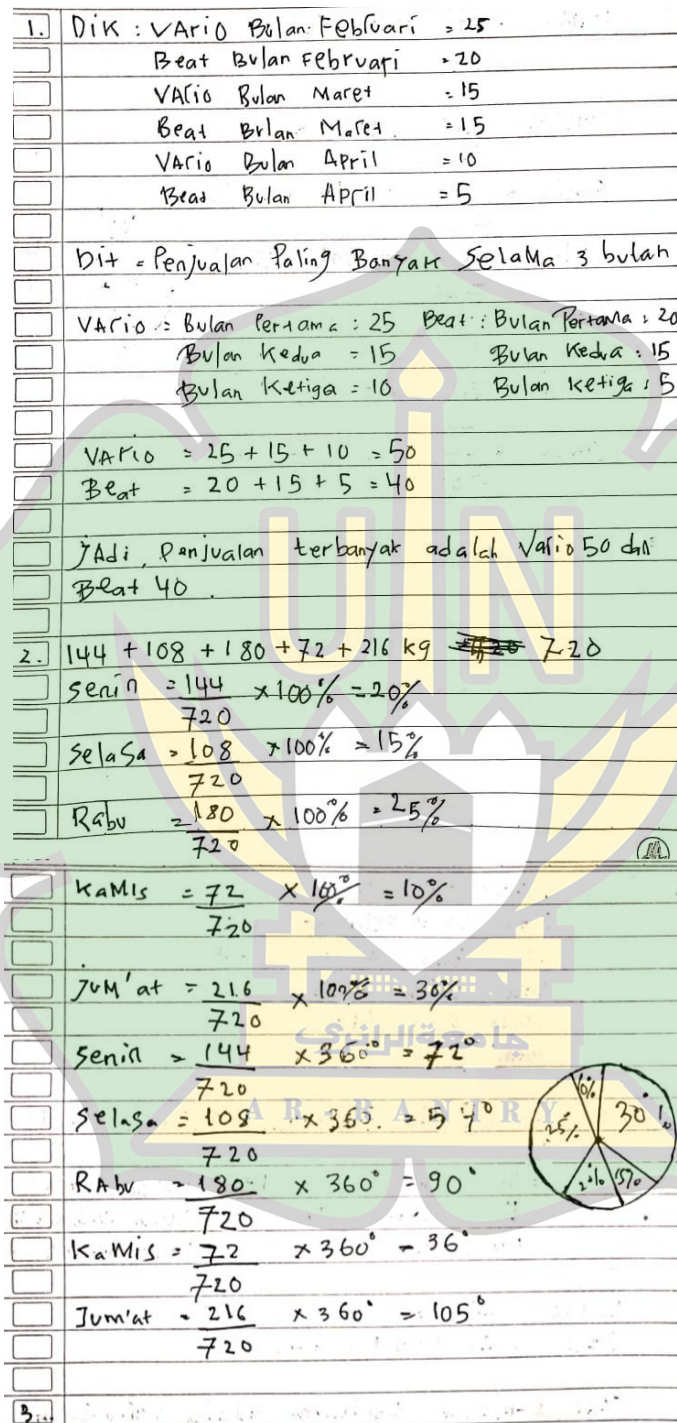 1. Dik : Vario Bulan Februari = 25
Beat Bulan Februari = 20
Vario Bulan Maret = 15
Beat Bulan Maret = 15
Vario Bulan April = 10
Beat Bulan April = 5
Dit = Penjualan Paling Banyak Selama 3 bulan
Vario = Bulan Pertama : 25 Beat : Bulan Pertama : 20
Bulan Kedua = 15 Bulan Kedua : 15
Bulan Ketiga = 10 Bulan Ketiga : 5
Vario = 25 + 15 + 10 = 50
Beat = 20 + 15 + 5 = 40
Jadi, Penjualan terbanyak adalah Vario 50 dan
Beat 40.
2. 144 + 108 + 180 + 72 + 216 kg 720
Senin = 144/720 × 100% = 20%
Selasa = 108/720 × 100% = 15%
Rabu = 180/720 × 100% = 25%
Kamis = 72/720 × 100% = 10%
Jum'at = 216/720 × 100% = 30%
Senin = 144/720 × 360° = 72°
Selasa = 108/720 × 360° = 54°
Rabu = 180/720 × 360° = 90°
Kamis = 72/720 × 360° = 36°
Jum'at = 216/720 × 360° = 105°
10% 30% 25% 20% 15%
3.
UIN
جامعة الرانري
AR-RANIRY